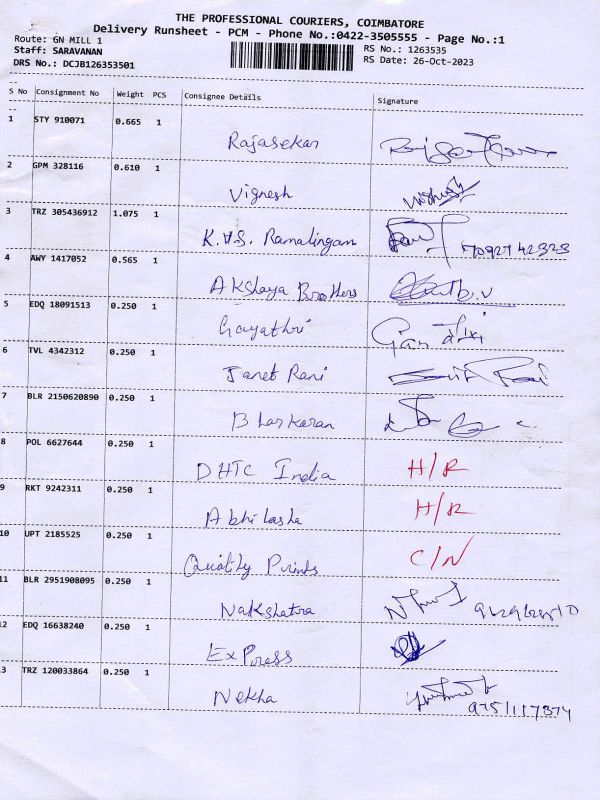 THE PROFESSIONAL COURIERS, COIMBATORE
Delivery Runsheet - PCM - Phone No.:0422-3505555 - Page No.:1
Route: GN MILL 1
RS No.: 1263535
Staff: SARAVANAN
RS Date: 26-Oct-2023
DRS No.: DCJB126353501
S No Consignment No Weight PCS Consignee Details Signature
1 STY 910071 0.665 1
Rajasekar
2 GPM 328116 0.610 1
Vignesh
3 TRZ 305436912 1.075 1
K.V.S. Ramalingam
4 AWY 1417052 0.565 1
Akshaya Brothers
5 EDQ 18091513 0.250 1
Gayathri
6 TVL 4342312 0.250 1
Janet Rani
7 BLR 2150620890 0.250 1
Bhaskaran
8 POL 6627644 0.250 1
DHTC India H/R
9 RKT 9242311 0.250 1
Abhilasha H/R
10 UPT 2185525 0.250 1
Quality Prints C/N
11 BLR 2951908095 0.250 1
Nakshatra
12 EDQ 16638240 0.250 1
ExPress
13 TRZ 120033864 0.250 1
Nekha 9751117374